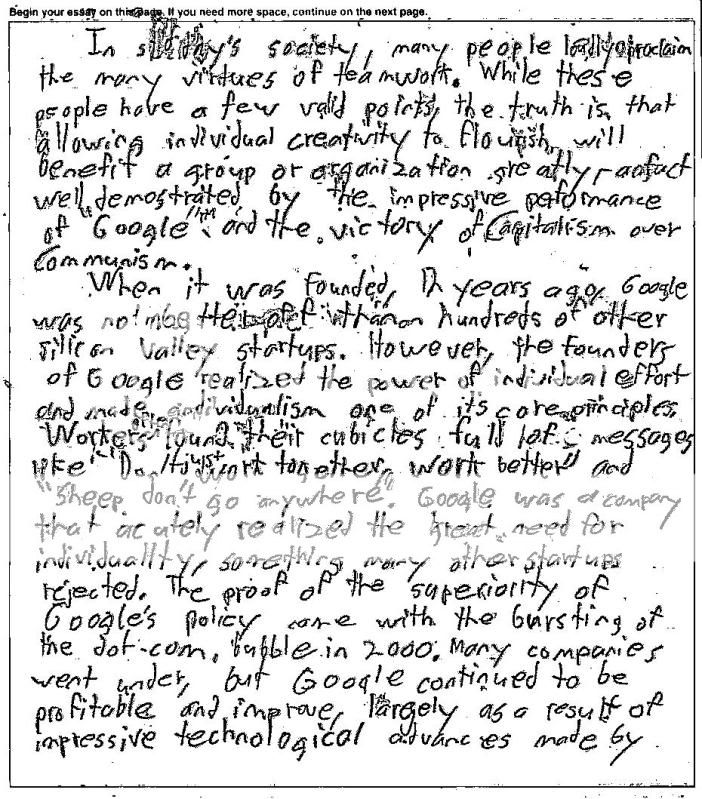 Begin your essay on this page. If you need more space, continue on the next page.
In society, many people loudly proclaim
the many virtues of teamwork. While these
people have a few valid points, the truth is, that
allowing individual creativity to flourish, will
benefit a group or organization greatly, a fact
well demostrated by the impressive peformance
of "Google" and the victory of Capitalism over
Communism.
When it was founded, 12 years ago, Google
was not than hundreds of other
silicon Valley startups. However, the founders
of Google realized the power of individual effort
and made individualism one of its core principles.
Workers often found their cubicles full of messages
like "Don't just work together, work better" and
"Sheep don't go anywhere". Google was a company
that acutely realized the great need for
individuality, something many other startups
rejected. The proof of the superiority of
Google's policy came with the bursting of
the dot-com bubble in 2000. Many companies
went under, but Google continued to be
profitable and improve, largely as a result of
impressive technological advances made by